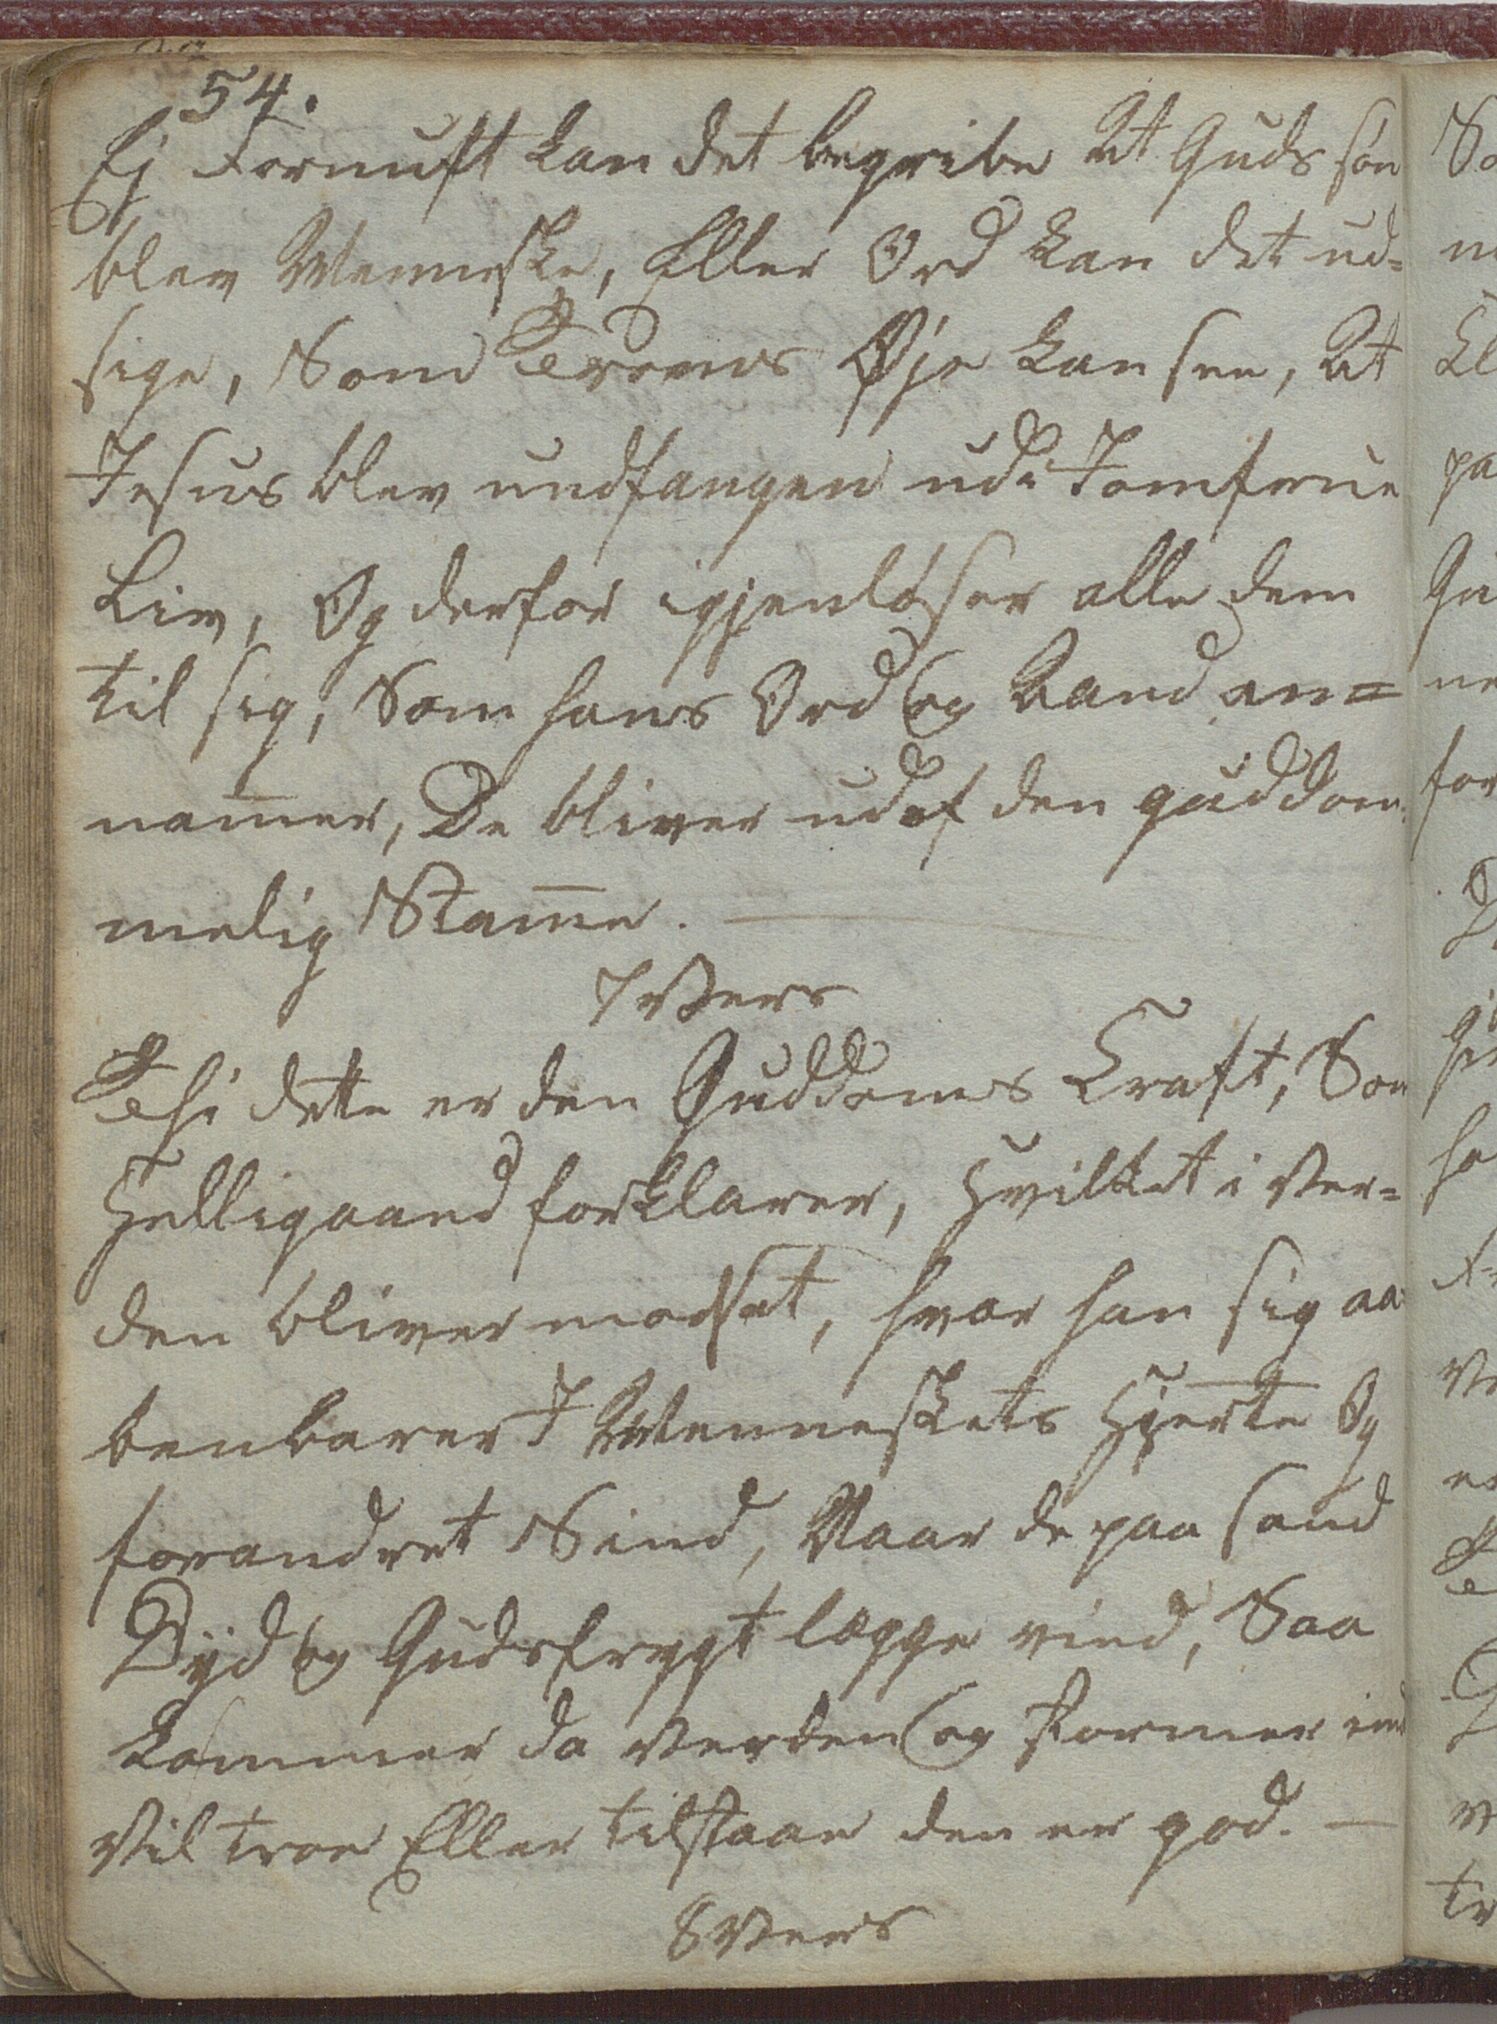 54.
Ej Fornuft kan det begribe At Guds søn
blev Menneske, Eller Ord kan det ud=
sige, Som Troens Øje kan see, At
Jesus blev undfangen udi Jomfrue
Liv, Og derfor igjenløser alle dem
til sig, Som hans Ord og Aand an=
nam̅er, De bliver ud af den guddom=
melig Stam̅e.
7 Vers
Thi dette er den Guddoms Kraft, Som
Helligaand forklarer, Hvilket i Ver=
den bliver modsat, hvor han sig aa=
benbarer I Menneskets Hjerte Og
forandret Sind, Naar de paa sand
Dyd og Gudsfrygt lægge vind, Saa
kommer da Verden og stormer ind
Vil troe Eller tilstaae den er god. —
8 Vers